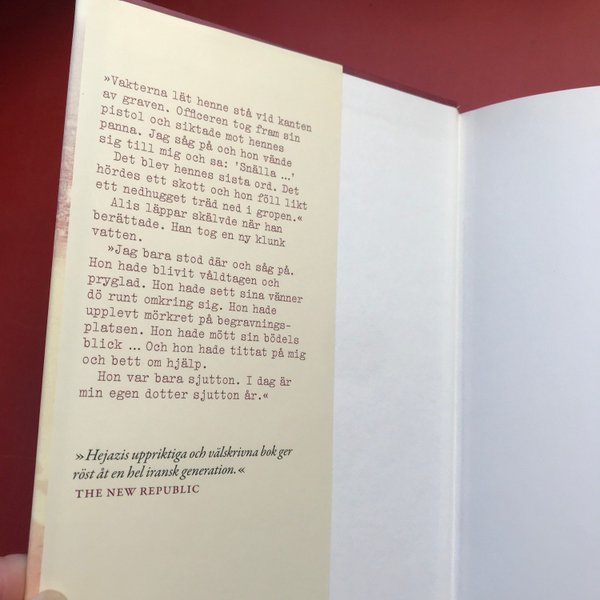 »Vakterna lät henne stå vid kanten
av graven. Officeren tog fram sin
pistol och siktade mot hennes
panna. Jag såg på och hon vände
sig till mig och sa: 'Snälla ...'
Det blev hennes sista ord. Det
hördes ett skott och hon föll likt
ett nedhugget träd ned i gropen.«
Alis läppar skälvde när han
berättade. Han tog en ny klunk
vatten.
»Jag bara stod där och såg på.
Hon hade blivit våldtagen och
pryglad. Hon hade sett sina vänner
dö runt omkring sig. Hon hade
upplevt mörkret på begravnings-
platsen. Hon hade mött sin bödels
blick ... Och hon hade tittat på mig
och bett om hjälp.
Hon var bara sjutton. I dag är
min egen dotter sjutton år.«
»Hejazis uppriktiga och välskrivna bok ger
röst åt en hel iransk generation.«
THE NEW REPUBLIC